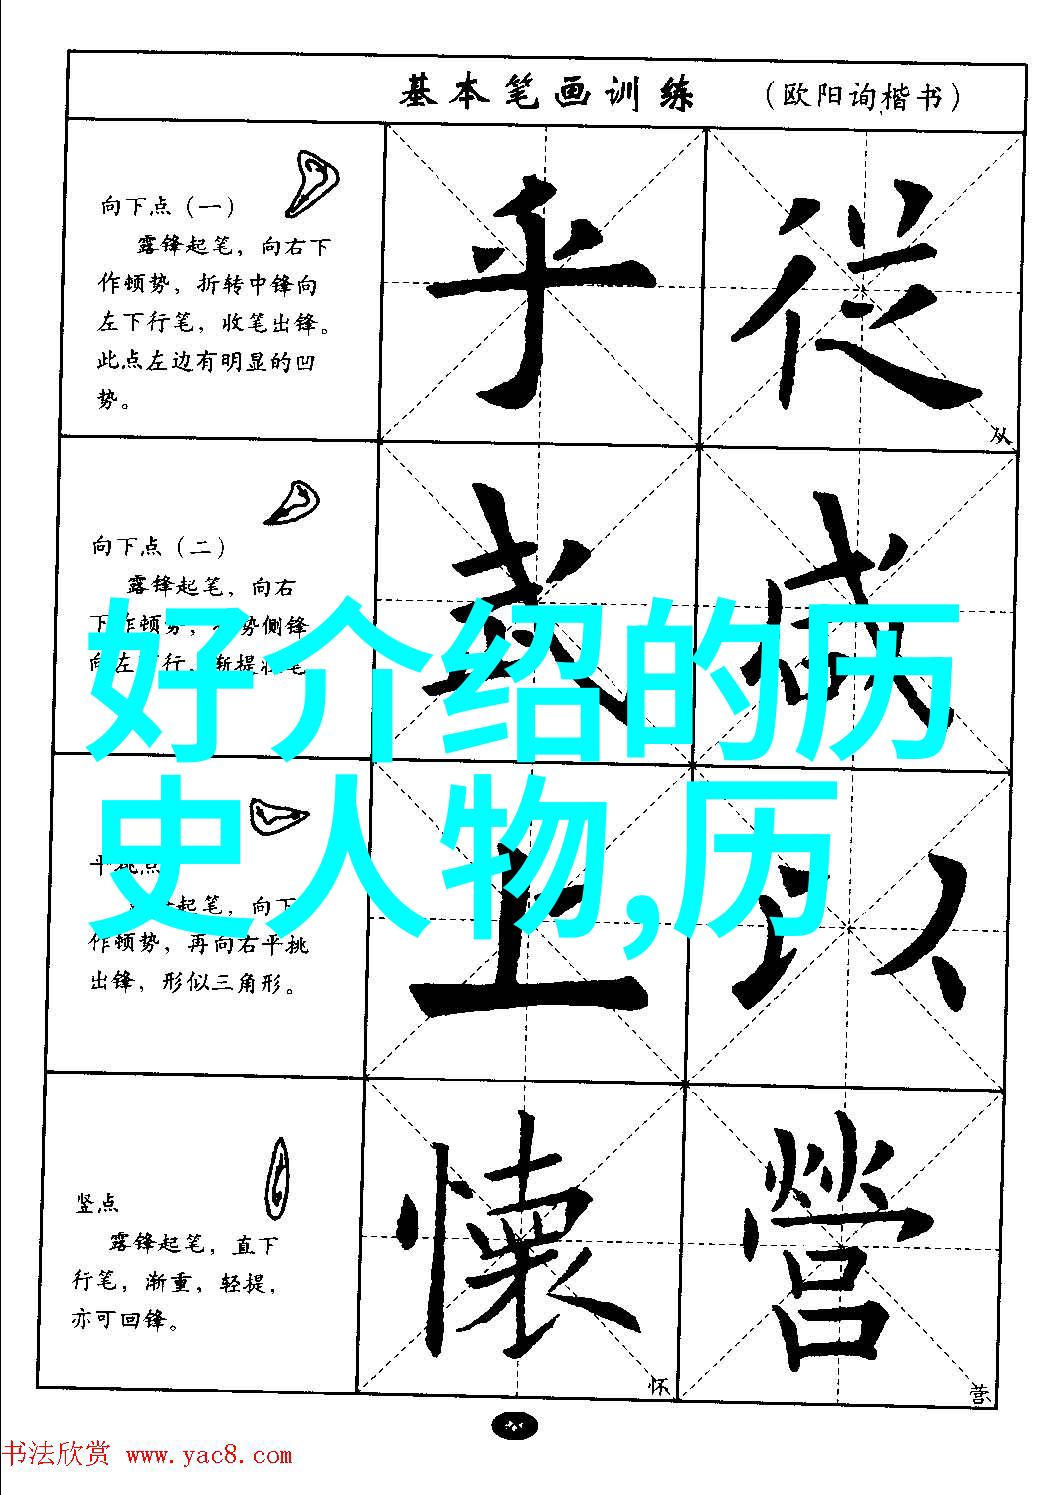 基本笔画训练 （欧阳询楷书）
向下点（一）
露锋起笔，向右下
作顿势，折转中锋向
左下行笔，收笔出锋。
此点左边有明显的凹
势。
乎 從
从
向下点（二）
露锋起笔，向右
下作顿势，
势侧锋
向左下行，渐提收笔
感
好介绍的历
史人物,历
平挑点
起笔，向下
作顿势，再向右平挑
出锋，形似三角形。
上 以
竖点
露锋起笔，直下
行笔，渐重，轻提，
亦可回锋。
懷 營
怀 营
书法欣赏 www.yac8.com